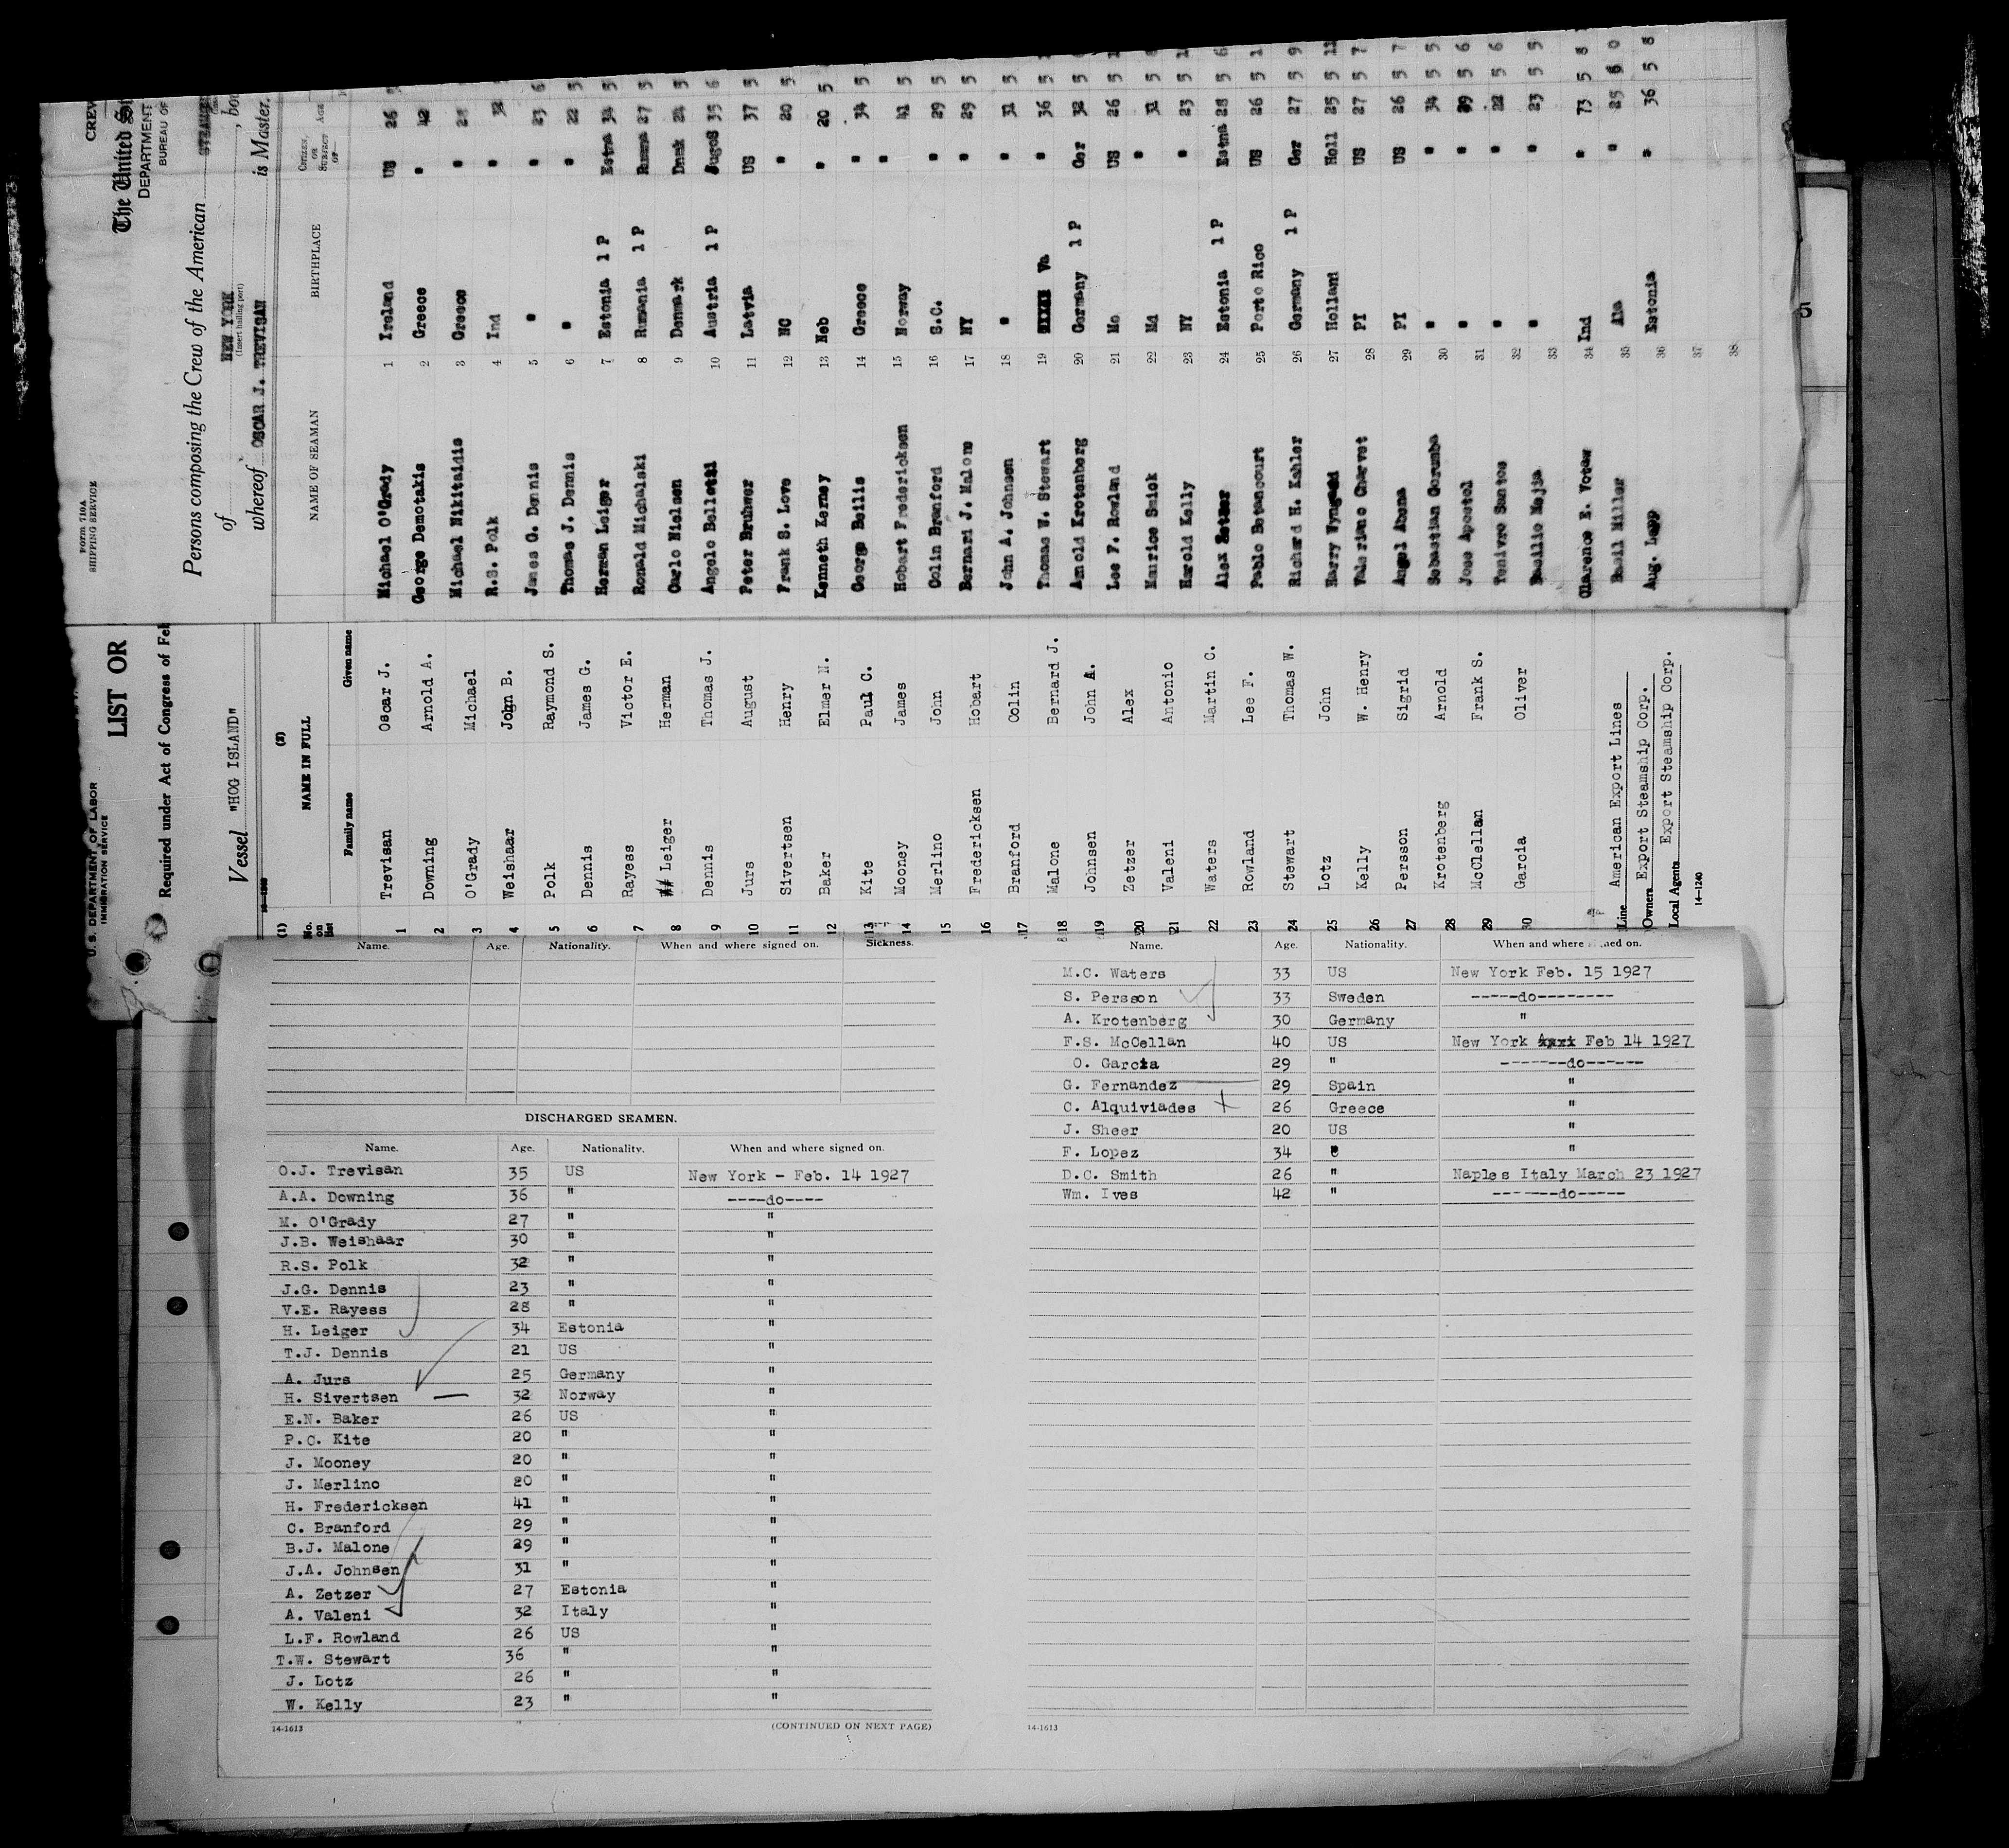 FORM 710A
SHIPPING SERVICE
CREW
The United St
DEPARTMENT
BUREAU OF
Persons composing the Crew of the American STEAMER
of NEW YORK , bou
(Insert hailing port)
whereof OSCAR J. TREVISAN is Master.
NAME OF SEAMAN BIRTHPLACE CITIZEN OR SUBJECT OF Age
Michael O'Grady 1 Ireland US 26 5
George Demotakis 2 Greece " 42
Michael Nikitaidis 3 Greece "
R.S. Polk 4 Ind " 32
James G. Dennis 5 " " 23 6
Thomas J. Dennis 6 " " 22 5
Herman Leiger 7 Estonia 1 P Estna 34 5
Ronald Michalski 8 Rumania 1 P Ruma 27 5
Carlo Nielsen 9 Denmark Dnmk 24 5
Angelo Belletti 10 Austria 1 P Jugos 35 6
Peter Bruhwer 11 Latvia US 37 5
Frank S. Love 12 NC " 20 5
Kenneth Kerney 13 Neb " 20 5
George Beilis 14 Greece " 34 5
Hobart Fredericksen 15 Norway " 41 5
Colin Branford 16 S.C. " 29 5
Bernari J. Malone 17 NY " 29 5
John A. Johnsen 18 " " 31 5
Thomas W. Stewart 19 Va " 36 5
Arnold Krotenberg 20 Germany 1 P Ger 32 5
Lee F. Rowland 21 Mo US 26 5 1
Maurice Smick 22 Md " 31 5
Harold Kelly 23 NY " 23 5 1
Alex Zetzer 24 Estonia 1 P Estna 28 5 6
Pablo Betancourt 25 Porto Rico US 26 5 1
Richard H. Kahler 26 Germany 1 P Ger 27 5 9
Harry Wyngaed 27 Hollani Holl 25 5 11
Valeriano Charvet 28 PI US 27 5 7
Angel Abena 29 PI US 26 5 7
Sebastian Gorumba 30 " " 34 5 5
Jose Apostol 31 " " 29 5 6
Tenivro Santos 32 " " 22 5 6
Basilio Mejia 33 " " 23 5 5
Clarence E. Votaw 34 Ind " 73 5 8
Basil Miller 35 Ala " 25 6 0
Aug. Lepp 36 Estonia " 36 5 8
37
38
U. S. DEPARTMENT OF LABOR
IMMIGRATION SERVICE
LIST OR
Required under Act of Congress of Feb
Vessel "HOG ISLAND"
(1) (2)
No. on list NAME IN FULL
Family name Given name
1 Trevisan Oscar J.
2 Downing Arnold A.
3 O'Grady Michael
4 Weishaar John B.
5 Polk Raymond S.
6 Dennis James G.
7 Rayess Victor E.
8 ## Leiger Herman
9 Dennis Thomas J.
10 Jurs August
11 Sivertsen Henry
12 Baker Elmer N.
13 Kite Paul C.
14 Mooney James
15 Merlino John
16 Fredericksen Hobart
17 Branford Colin
18 Malone Bernard J.
19 Johnsen John A.
20 Zetzer Alex
21 Valeni Antonio
22 Waters Martin C.
23 Rowland Lee F.
24 Stewart Thomas W.
25 Lotz John
26 Kelly W. Henry
27 Persson Sigrid
28 Krotenberg Arnold
29 McClellan Frank S.
30 Garcia Oliver
Line American Export Lines
Owners Export Steamship Corp.
Local Agents Export Steamship Corp.
14-1240
5
Name. Age. Nationality. When and where signed on. Sickness.
DISCHARGED SEAMEN.
Name. Age. Nationality. When and where signed on.
O.J. Trevisan 35 US New York - Feb. 14 1927
A.A. Downing 36 " ----do----
M. O'Grady 27 " "
J.B. Weishaar 30 " "
R.S. Polk 32 " "
J.G. Dennis 23 " "
V.E. Rayess 28 " "
H. Leiger 34 Estonia "
T.J. Dennis 21 US "
A. Jurs 25 Germany "
H. Sivertsen 32 Norway "
E.N. Baker 26 US "
P.C. Kite 20 " "
J. Mooney 20 " "
J. Merlino 20 " "
H. Fredericksen 41 " "
C. Branford 29 " "
B.J. Malone 29 " "
J.A. Johnsen 31 " "
A. Zetzer 27 Estonia "
A. Valeni 32 Italy "
L.F. Rowland 26 US "
T.W. Stewart 36 " "
J. Lotz 26 " "
W. Kelly 23 " "
14-1613 (CONTINUED ON NEXT PAGE)
Name. Age. Nationality. When and where signed on.
M.C. Waters 33 US New York Feb. 15 1927
S. Persson 33 Sweden -----do--------
A. Krotenberg 30 Germany "
F.S. McCellan 40 US New York Feb 14 1927
O. Garcia 29 " -------do------
G. Fernandez 29 Spain "
C. Alquiviades 26 Greece "
J. Sheer 20 US "
F. Lopez 34 " "
D.C. Smith 26 " Naples Italy March 23 1927
Wm. Ives 42 " -------do-----
14-1613